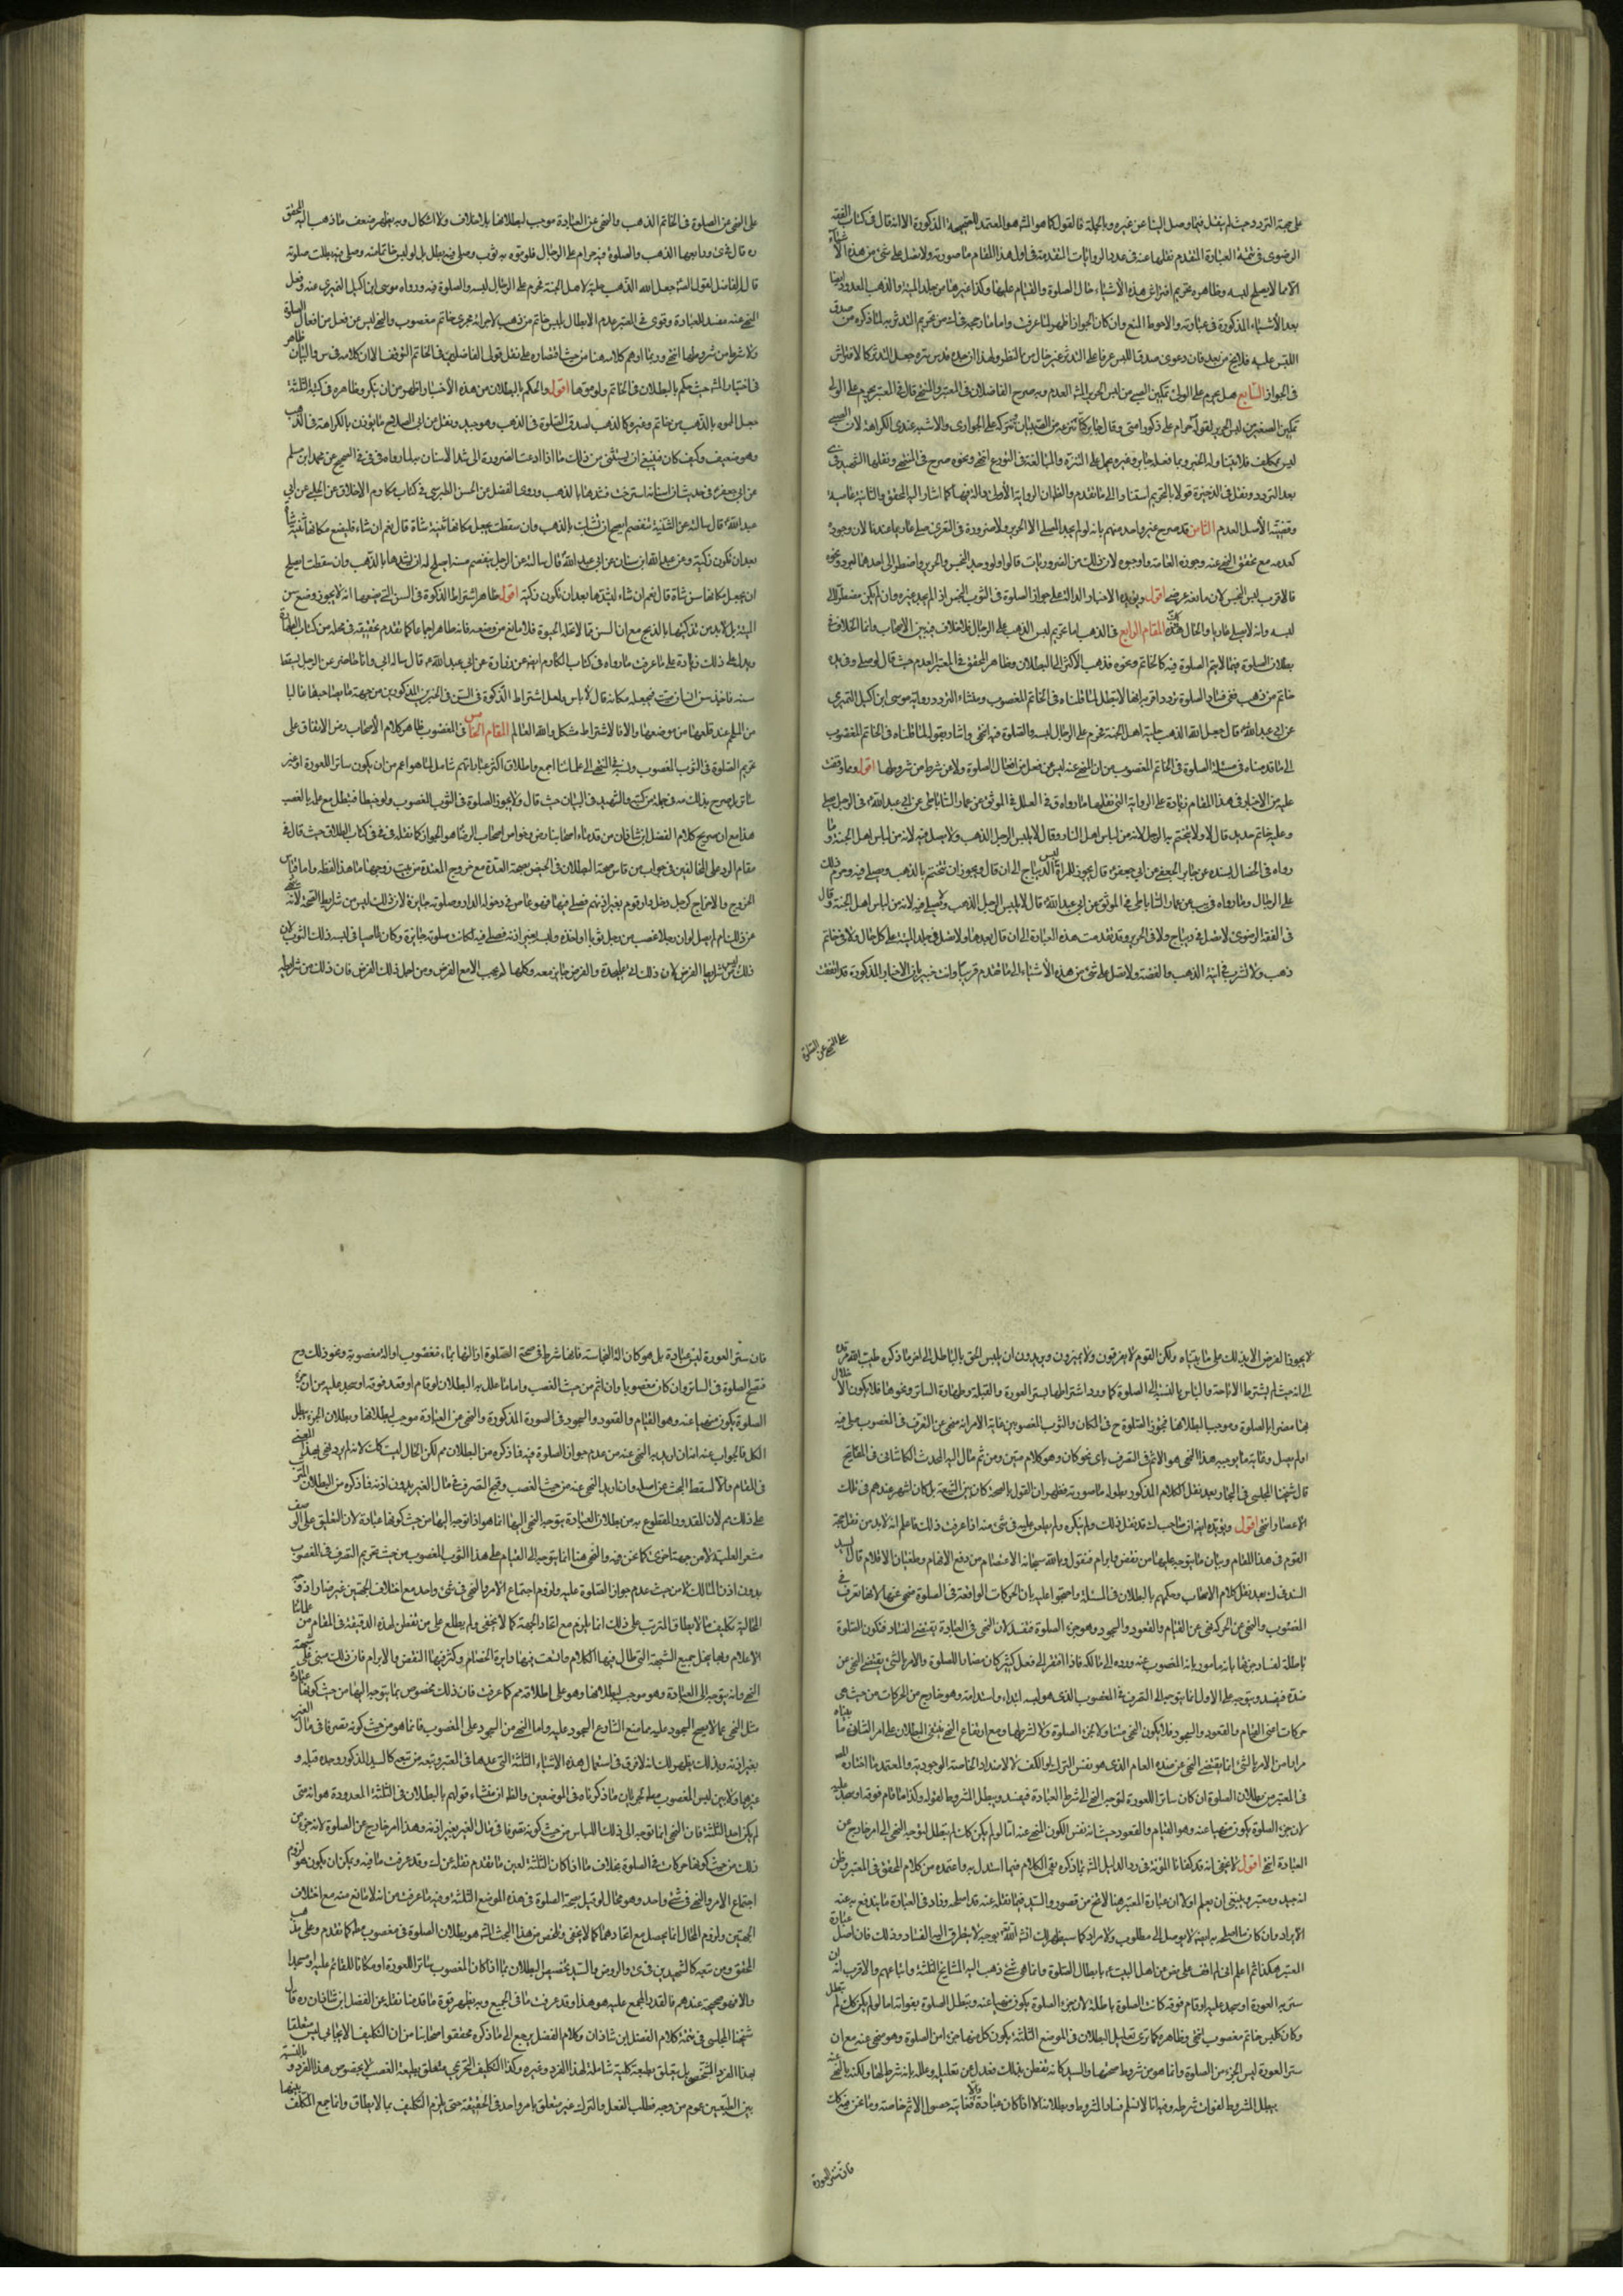 على جهة التردد حيث لم ينقل فيما وصل الينا عن غيره وبالجملة فالقول كما هو المشهور المعتمد للصحيحة المذكورة الا انه قال في كتاب الفقه
الرضوي في تتمة العبارة المتقدم نقلها عنه في عدد الروايات المتقدمة في اول هذا المقام ما صورته ولا تصل على شئ من هذه الاشياء
الا ما لا يصلح لبسه وظاهره تحريم افتراش هذه الأشياء حال الصلوة والقيام عليها وكذا غيرها من جلد الميتة والذهب المعدود ايضا
بعد الأشياء المذكورة في عبارته والاحوط المنع وان كان الجواز اظهر لما عرفت واما ما رجحه في ك من تحريم التدثر به لما ذكره من صدق
اللبس عليه فلا يخ من بعد فان دعوى صدق اللبس عرفا على التدثر غير خال من النظر ولهذا ان جده قدس سره جعل التدثر كالافتراش
في الجواز السابع هل يحرم على الولي تمكين الصبي من لبس الحرير المشهور العدم وبه صرح الفاضلان في المعتبر والمنتهى قال في المعتبر يحرم على الولي
تمكين الصغير من لبس الحرير لقوله حرام على ذكور امتي وقال جابر كنا ننزعه عن الصبيان ونتركه على الجواري والاشبه عندي الكراهة لان الصبي
ليس بمكلف فلا يتناوله الخبر وما فعله جابر وغيره يحمل على التنزه والمبالغة في التورع انتهى ونحوه صرح في المنتهى ونقلها الشهيد في
بعد التردد ونقل في الذخيرة قولا بالتحريم استنادا الى ما تقدم والظ ان الرواية الأولى والثانية عامية
وقضية الأصل العدم الثامن قد صرح غير واحد منهم بانه لو لم يجد المصلي الا الحرير ولا ضرورة في التعري صلى عاريا عندنا لان وجوده
كعدمه مع تحقق النهي عنه وجوزه العامة واوجبوه لان ذلك من الضروريات قالوا ولو وجد النجس والحرير واضطر الى احدهما لبرد ونحوه
فالاقرب لبس النجس لان مانعه عرضي اقول ويؤيده الاخبار الدالة على جواز الصلوة في الثوب النجس اذا لم يجد غيره وان لم يكن مضطرا الى
لبسه وانه لا يصلي عاريا والحال هذه المقام الرابع في الذهب اما تحريم لبس الذهب على الرجال فلا خلاف فيه بين الاصحاب وانما الخلاف في
بطلان الصلوة فيما لا يتم الصلوة فيه كالخاتم ونحوه فذهب الأكثر الى البطلان وظاهر المحقق في المعتبر العدم حيث قال لو صلى وفي يده
خاتم من ذهب ففي فساد الصلوة تردد اقربه انها لا تبطل لما قلناه في الخاتم المغصوب ومنشاء التردد رواية موسى ابن اكيل النميري
عن ابي عبد الله قال جعل الله الذهب حلية اهل الجنة فحرم على الرجال لبسه والصلوة فيه انتهى واشار بقوله لما قلناه في الخاتم المغصوب
الى ما قدمناه في مسئلة الصلوة في الخاتم المغصوب من ان النهي عنه ليس عن فعل من افعال الصلوة ولا عن شرط من شروطها اقول ومما وقفت
عليه من الاخبار في هذا المقام زيادة على الرواية التي نقلها ما رواه ق في العلل في الموثق عن عمار الساباطي عن ابي عبد الله في الرجل يصلي
وعليه خاتم حديد قال لا ولا يتختم به الرجل لانه من لباس اهل النار وقال لا يلبس الرجل الذهب ولا يصلي فيه لانه من لباس اهل الجنة وما
رواه في الخصال بسنده عن جابر الجعفي عن ابي جعفر قال يجوز للمراة لبس الديباج الى ان قال ويجوز ان تتختم بالذهب وتصلي فيه وحرم ذلك
على الرجال وما رواه في يب عن عمار الساباطي في الموثق عن ابي عبد الله قال لا يلبس الرجل الذهب ولا يصلي فيه لانه من لباس اهل الجنة وقال
في الفقه الرضوي لا تصل في ديباج ولا في حرير وقد تقدمت هذه العبارة الى ان قال بعدها ولا تصل في جلد الميتة على كل حال ولا في خاتم
ذهب ولا تشرب في آنية الذهب والفضة ولا تصل على شئ من هذه الأشياء الى ما تقدم قريبا وانت خبير بان الاخبار المذكورة قد اتفقت
على النهي عن الصلوة
على النهي عن الصلوة في الخاتم الذهب والنهي عن العبادة موجب لبطلانها بلا خلاف ولا اشكال وبه يظهر ضعف ما ذهب اليه المحقق
ره قال في كرى ورابعها الذهب والصلوة فيه حرام على الرجال فلو موه به ثوب وصلى فيه بطل بل لو لبس خاتما منه وصلى فيه بطلت صلوته
قاله الفاضل لقول الصادق جعل الله الذهب حلية لاهل الجنة فحرم على الرجال لبسه والصلوة فيه ورواه موسى ابن اكيل النميري عنه وفعل
النهي عنه مفسد للعبادة وقوى في المعتبر عدم الابطال بلبس خاتم من ذهب لاجرائه مجرى خاتم مغصوب والنهي ليس عن فعل من افعال الصلوة
ولا شرط من شروطها انتهى وربما اوهم كلامه هنا من حيث اقتصاره على نقل قول الفاضلين في الخاتم التوقف الا ان كلامه في س والبيان ظاهر
في اختيار المشهور حيث حكم بالبطلان في الخاتم ولو موها اقول والحكم بالبطلان من هذه الأخبار اظهر من ان ينكر وظاهره في كتبه الثلثة
جعل المموه بالذهب من خاتم وغيره كالذهب لصدق الصلوة في الذهب وهو جيد ونقل عن ابي الصلاح ما يؤذن بالكراهة في المذهب
وهو ضعيف وكيف كان فينبغي ان يستثنى من ذلك ما اذا دعت الضرورة الى شد الاسنان به لما رواه في في الصحيح عن محمد ابن مسلم
عن ابي جعفر في حديث ان اسنانه استرخت فشدها بالذهب وروى الفضل بن الحسن الطبرسي في كتاب مكارم الاخلاق عن الحلبي عن ابي
عبد الله قال سالته عن الثنية تنفصم ايصلح ان تشبك بالذهب وان سقطت يجعل مكانها ثنية شاة قال نعم ان شاء فليضع مكانها ثنية شاة
بعد ان تكون ذكية وعن عبد الله ابن سنان عن ابي عبد الله قال سالته عن الرجل ينفصم سنه ايصلح له ان يشدها بالذهب وان سقطت ايصلح
ان يجعل مكانها سن شاة قال نعم ان شاء ليشدها بعد ان تكون ذكية اقول ظاهر اشتراط الذكوة في السن التي يضعها انه لا يجوز وضع سن
الميتة بل لا بد من تذكيتها بالذبح مع ان السن مما لا تحله الحيوة فلا مانع من وضعه فانه طاهر اجماعا كما تقدم تحقيقه في محله من كتاب الطهارة
ويدل على ذلك زيادة على ما عرفت ما رواه في كتاب المكارم ايضا عن زرارة عن ابي عبد الله قال ساله ابي وانا حاضر عن الرجل يسقط
سنه فاخذ سن انسان ميت فيجعله مكانه قال لا باس ولعل اشتراط الذكوة في السن في الخبرين المذكورين من جهة ما يصاحبها غالبا
من اللحم عند قلعها من موضعها والا فالاشتراط مشكل والله العالم المقام الخامس في المغصوب ظاهر كلام الأصحاب رض الاتفاق على
تحريم الصلوة في الثوب المغصوب ونسبه في المنتهى الى علمائنا اجمع واطلاق اكثر عباراتهم شامل لما هو اعم من ان يكون ساتر اللعورة او غير
ساتر بل صرح بذلك مه في جملة من كتبه والشهيد في البيان حيث قال ولا يجوز الصلوة في الثوب المغصوب ولو خيطا فتبطل مع علمه بالغصب
هذا مع ان صريح كلام الفضل ابن شاذان من قدماء اصحابنا رض وخواص اصحاب الرضا هو الجواز كما نقله في في كتاب الطلاق حيث قال في
مقام الرد على المخالفين في جواب من قاس صحة الطلاق في الحيض بصحة العدة مع خروج المعتدة من بيت زوجها ما هذا لفظه واما قياس
الخروج والاخراج كرجل دخل دار قوم بغير اذنهم فصلى فيها فهو عاص في دخوله الدار وصلوته جايزة لان ذلك ليس من شرايط الصلوة لانه منهي
عن ذلك صلى ام لم يصل لو ان رجلا غصب من رجل ثوبا او اخذه ولبسه بغير اذنه فصلى فيه لكانت صلوته جايزة وكان عاصيا في لبسه ذلك الثوب لان
ذلك ليس من شرايط الفرض لان ذلك اتى على حدة والفرض جايز معه وكلما لم يجب الا مع الفرض ومن اجل ذلك الفرض فان ذلك من شرايطه
لا يجوز الفرض الا بذلك على ما بيناه ولكن القوم لا يعرفون ولا يميزون ويريدون ان يلبس الحق بالباطل الى اخر ما ذكره طيب الله مرقده
اولم يصل وغاية ما يوجبه هذا النهي هو الاثم في التصرف باي نحو كان وهو كلام متين ومن ثم مال اليه المحدث الكاشاني في المفاتيح
قال شيخنا المجلسي في البحار بعد نقل الكلام المذكور بطوله ما صورته فظهر ان القول بالصحة كان بين الشيعة بل كان اشهر عندهم في تلك
الاعصار انتهى اقول ويؤيده ايضا ان صاحب في قد نقل ذلك ولم ينكره ولم يطعن عليه في شئ منه اذا عرفت ذلك فاعلم انه لا بد من نقل حجة
القوم في هذا المقام وبيان ما يتوجه عليها من نقض وابرام فنقول وبالله سبحانه الاعتصام من دفع الاوهام وطغيان الاقلام قال السيد
السند في ك بعد نقل كلام الاصحاب وحكمهم بالبطلان في المسئلة واحتجوا عليه بان الحركات الواقعة في الصلوة منهي عنها لانها تصرف في
المغصوب والنهي عن الحركة نهي عن القيام والقعود والسجود وهو جزء الصلوة فتفسد لان النهي في العبادة يقتضي الفساد فتكون الصلوة
باطلة لفساد جزئها بانه مأمور بابانة المغصوب عنه ورده الى مالكه فاذا افتقر الى فعل كثير كان مضادا للصلوة والامر بالشئ يقتضي النهي عن
ضده فيفسد ويتوجه على الاول انما يتوجه الى التصرف في المغصوب الذي هو لبسه ابتداء واستدامة وهو خارج من الحركات من حيث هي
حركات اعني القيام والقعود والسجود فلا يكون النهي متناولا لجزء الصلوة ولا لشرطها ومع ارتفاع النهي ينتفي البطلان وعلى الثاني ما بيناه
مرارا من الامر بالشئ انما يقتضي النهي عن ضده العام الذي هو نفس الترك او الكف لا الاضداد الخاصة الوجودية والمعتمد ما اختاره المصنف
في المعتبر من بطلان الصلوة ان كان ساتر اللعورة لتوجه النهي الى شرط العبادة فيفسد ويبطل المشروط بفواته وكذا اذا قام فوقه او سجد عليه
لان جزء الصلوة يكون منهيا عنه وهو القيام والقعود حيث انه نفس الكون المنهي عنه اما لو لم يكن كذلك لم يبطل لتوجه النهي الى امر خارج عن
العبادة انتهى اقول لا يخفى انه قد كفانا المؤنة في رد الدليل المشهور بما ذكره بقي الكلام فيما استدل به واعتمده من كلام المحقق في المعتبر وظن
انه جيد ومعتبر وينبغي ان يعلم اولا ان عبارة المعتبر هنا لا تخ من قصور والسيد فيما نقله عنه قد اصلحه وزاد في العبارة ما يندفع به عنه
الايراد وان كان ما اصلحه به ايضا لا يوصل الى مطلوب ولا مراد كما سيظهر لك انشاء الله تعالى بوجه لا يتطرق اليه الفساد وذلك فان اصل عبارة
المعتبر هكذا ثم اعلم اني لم اقف على نص من اهل البيت بابطال الصلوة وانما هي شئ ذهب اليه المشايخ الثلثة واتباعهم والاقرب انه ان
ستر به العورة او سجد عليه او قام فوقه كانت الصلوة باطلة لان جزء الصلوة يكون منهيا عنه وتبطل الصلوة بفواته اما لو لم يكن كذلك لم تبطل
وكان كلبس خاتم مغصوب انتهى وظاهره كما ترى تعليل البطلان في المواضع الثلثة بكون كل منها جزءا من الصلوة وهو منهي عنه مع ان
ستر العورة ليس الجزء من الصلوة وانما هو من شروط صحتها والسيد كانه تفطن لذلك فعدل عن تعليله وعلله بانه شرط لها ولكنه بالنهي عنه
يبطل المشروط لفوات شرطه وفيه انا لا نسلم فساد الشروط وبطلانه الا اذا كان عبادة والا فغايته حصول الاثم خاصة وما نحن فيه كذلك
فان ستر العورة
فان ستر العورة ليس عبادة بل هو كازالة النجاسة فانها شرط في صحة الصلوة اذ ازالتها بماء مغصوب او الة مغصوبة ونحو ذلك وح
فتصح الصلوة في الساتر وان كان مغصوبا وان اثم من حيث الغصب واما ما علل به البطلان لو قام او قعد فوقه او سجد عليه من ان جزء
الصلوة يكون منهيا عنه وهو القيام والقعود والسجود في الصورة المذكورة والنهي عن العبادة موجب لبطلانها وبطلان الجزء يبطل
الكل فالجواب عنه انه ان اريد به النهي عنه من عدم جواز الصلوة فيه فما ذكره من البطلان مم لكن الحال ليست كذلك لانه لم يرد نهي بهذا المعنى
في المقام والا لسقط البحث من اصله وان اريد النهي عنه من حيث الغصب وقبح التصرف في مال الغير بدون اذنه فما ذكره من البطلان المترتب
على ذلك مم لان القدر المقطوع به من بطلان العبادة بتوجه النهي اليها انما هو اذا توجه اليها من حيث كونها عبادة لان التعليق على الوصف
مشعر بالعلية لا من جهة اخرى كما نحن فيه والنهي هنا انما يتوجه الى القيام على هذا الثوب المغصوب من حيث تحريم التصرف في المغصوب
بدون اذن المالك لا من حيث عدم جواز الصلوة عليه ولزوم اجتماع الامر والنهي في شئ واحد مع اختلاف الجهتين غير ضار اذ قوة
الحالية تكليف ما لا يطاق المترتب على ذلك انما يلزم مع اتحاد الجهة كما لا يخفى ولم يطلع على من تفطن لهذه الدقيقة في المقام من علمائنا
الاعلام وبها ينحل جميع الشبهة التي طال فيها الكلام واتسعت فيها دايرة الخصام وكثر فيها النقض والابرام فان ذلك مبني على شبهة
النهي وانه يتوجه الى العبادة وهو موجب لبطلانها وهو على اطلاقه مم كما عرفت فان ذلك مخصوص بما يتوجه اليها من حيث كونها عبادة
مثل النهي عما لا يصح السجود عليه مما منع الشارع السجود عليه واما النهي من السجود على المغصوب فانما هو من حيث كونه تصرفا في مال الغير
بغير اذنه وبذلك يظهر لك انه لا فرق في استعمال هذه الاشياء الثلثة التي عدها في المعتبر وتبعه من تبعه كالسيد المذكور وجده قبله و
غيرهما ولا بين لبس المغصوب مطلقا لجريان ما ذكرناه في الموضعين والظ ان منشاء قولهم بالبطلان في الثلثة المعدودة هو انه متى
لم يكن احد الثلثة فان النهي انما توجه الى ذلك اللباس من حيث كونه تصرفا في مال الغير بغير اذنه وهذا امر خارج عن الصلوة لانه جزء من
ذلك من حيث كونها حركات في الصلوة بخلاف ما اذا كان الثلثة لعين ما تقدم نقله عن ك وقد عرفت ما فيه ويمكن ان يكون هو لزوم
اجتماع الامر والنهي في شئ واحد وهو محال لو قيل بصحة الصلوة في هذه المواضع الثلثة وفيه ما عرفت من انه لا مانع منه مع اختلاف
الجهتين ولزوم المحال انما يحصل مع اتحادهما كما لا يخفى وتلخص من هذا البحث المشهور هو بطلان الصلوة في مغصوب مطلقا كما تقدم وعلى مذهب
المحقق ومن تبعه كالشهيدين في كرى والروض والسيد تخصيص البطلان بما اذا كان المغصوب ساتر اللعورة او مكانا للقائم عليه او سجد
والا فهو صحيحة عندهم فالقدر المجمع عليه هو هذا وقد عرفت ما في الجميع وبه يظهر قوة ما قدمنا نقله عن الفضل ابن شاذان ره قال
شيخنا المجلسي في تتمة كلام الفضل ابن شاذان وكلام الفضل يرجع الى ما ذكره محققوا اصحابنا من ان التكليف الايجابي ليس متعلقا
بهذا الفرد الشخصي بل متعلق بطبيعة كلية شاملة لهذا الفرد وغيره وكذا التكليف التحريمي متعلق بطبيعة الغصب لا بخصوص هذا الفرد والنسبة
بين الطبيعتين عموم من وجه فطلب الفعل والترك غير متعلق بامر واحد في الحقيقة حتى يلزم التكليف بما لا يطاق وانما جمع المكلف بينهما